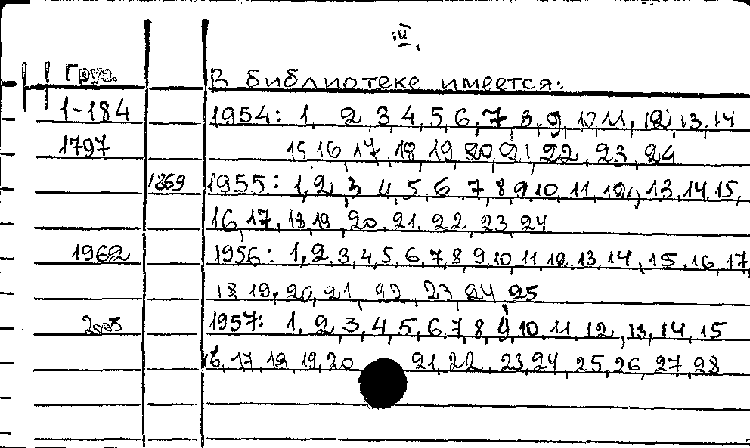 II.
Груз. В библиотеке имеется:
1-184 1954: 1, 2 3 4, 5, 6, 7 8, 9, 10 11, 12, 13, 14
1797 15 16 17, 18 19 20 21 22, 23, 24
1869 1955: 1, 2, 3 4, 5, 6 7, 8, 9, 10, 11, 12, 13, 14, 15,
16, 17, 18 19, 20, 21, 22, 23, 24
1962 1956: 1, 2, 3, 4, 5, 6, 7, 8, 9, 10, 11, 12, 13, 14, 15, 16, 17,
18 19, 20, 21, 22, 23, 24 25
1957: 1, 2, 3, 4, 5, 6, 7, 8, 9, 10, 11, 12, 13, 14, 15
16, 17, 18, 19, 20 21, 22, 23, 24, 25, 26, 27, 28